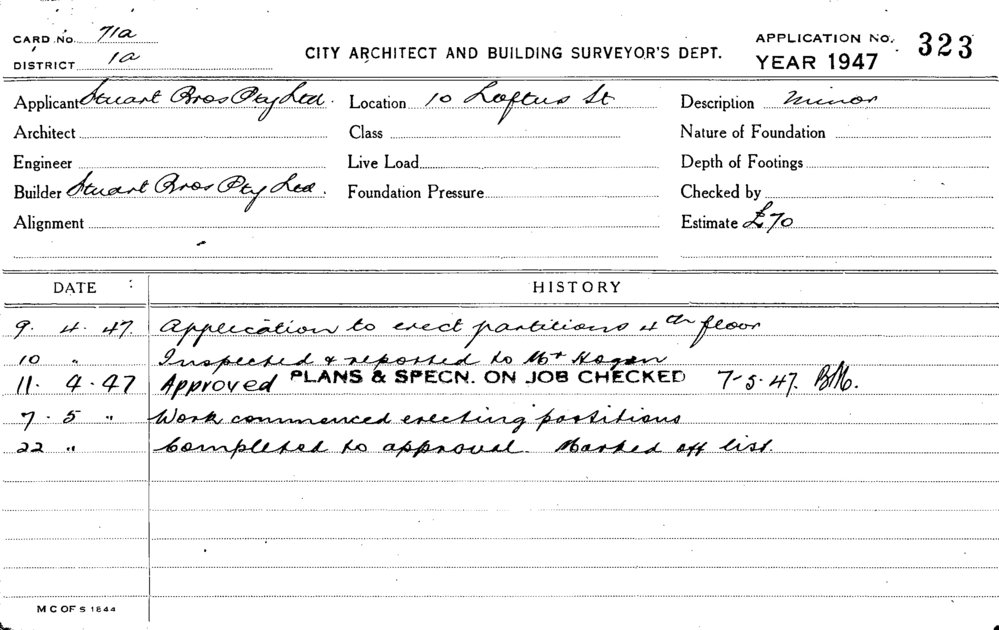 CARD NO. 71a
DISTRICT 1a
CITY ARCHITECT AND BUILDING SURVEYOR'S DEPT.
APPLICATION NO. 323
YEAR 1947
Applicant Stuart Bros Pty Ltd. Location 10 Loftus St Description Minor
Architect Class Nature of Foundation
Engineer Live Load Depth of Footings
Builder Stuart Bros Pty Ltd. Foundation Pressure Checked by
Alignment Estimate £70
DATE : HISTORY
9. 4. 47. Application to erect partitions 4th floor
10 " Inspected & reported to Mr Hogan
11. 4. 47 Approved PLANS & SPECN. ON JOB CHECKED 7-5-47. BM.
7. 5 " Work commenced erecting partitions
22 " Completed to approval. Marked off list.
M C OF S 1844